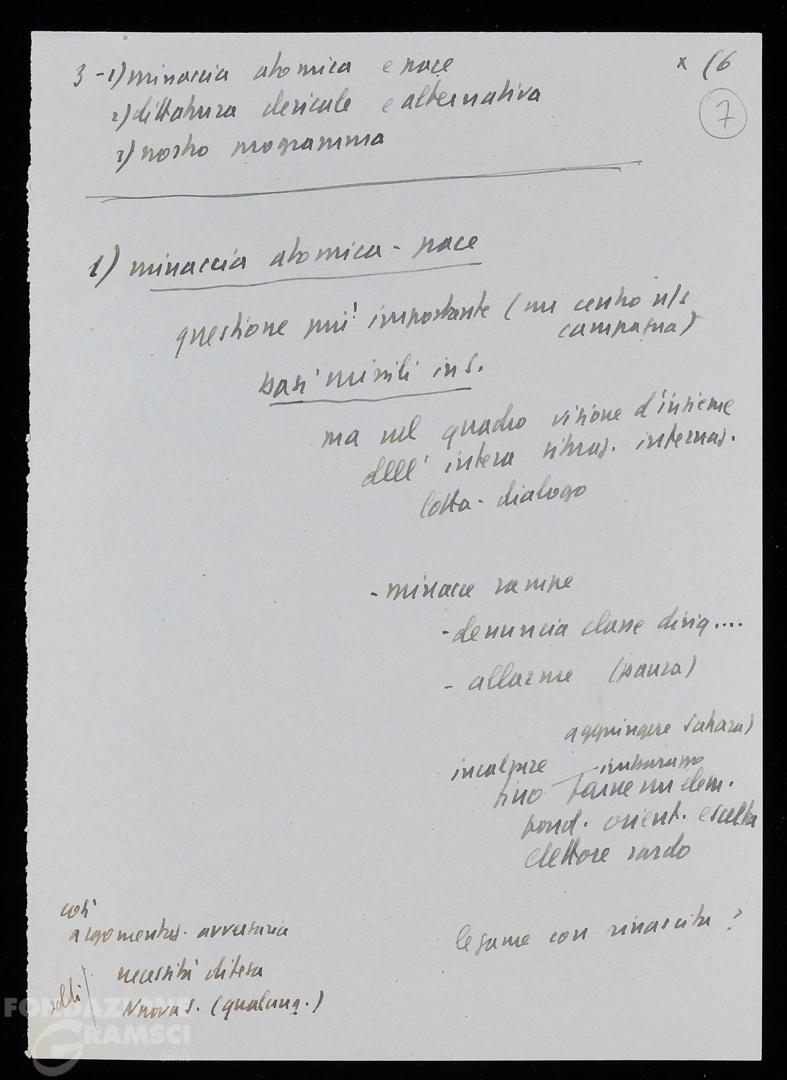 3 - 1) minaccia atomica e pace
x (6
7
2) dittatura clericale e alternativa
3) nostro programma
1) minaccia atomica - pace
questione più importante (un centro n/s
campagna)
basi missili in S.
ma nel quadro visione d'insieme
dell'intera situaz. internaz.
lotta - dialogo
- minacce rampe
- denuncia classe dirig....
- allarme (paura)
aggiungere Sahara)
incolpare imbarazzo
fino farne un elem.
fond. orient. e scelta
elettore sardo
così
argomentaz. avversaria
legame con rinascita?
necessità difesa
soldi
Nuova S. (qualunq.)
FONDAZIONE
GRAMSCI
onlus